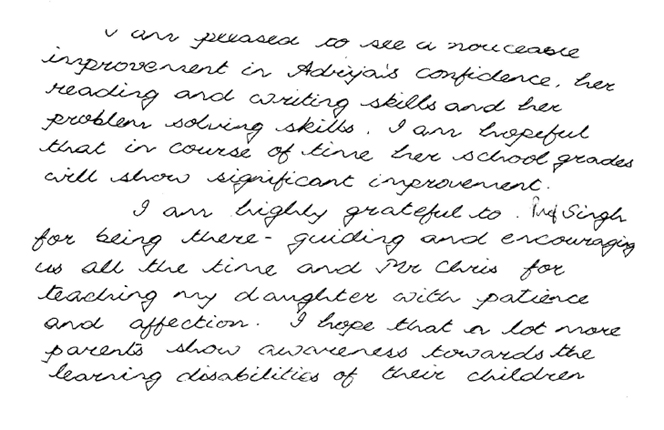 I am pleased to see a noticeable
improvement in Adrija's confidence, her
reading and writing skills and her
problem solving skills. I am hopeful
that in course of time her school grades
will show significant improvement.
I am highly grateful to. Singh
for being there - guiding and encouraging
us all the time and Mr Chris for
teaching my daughter with patience
and affection. I hope that a lot more
parents show awareness towards the
learning disabilities of their children